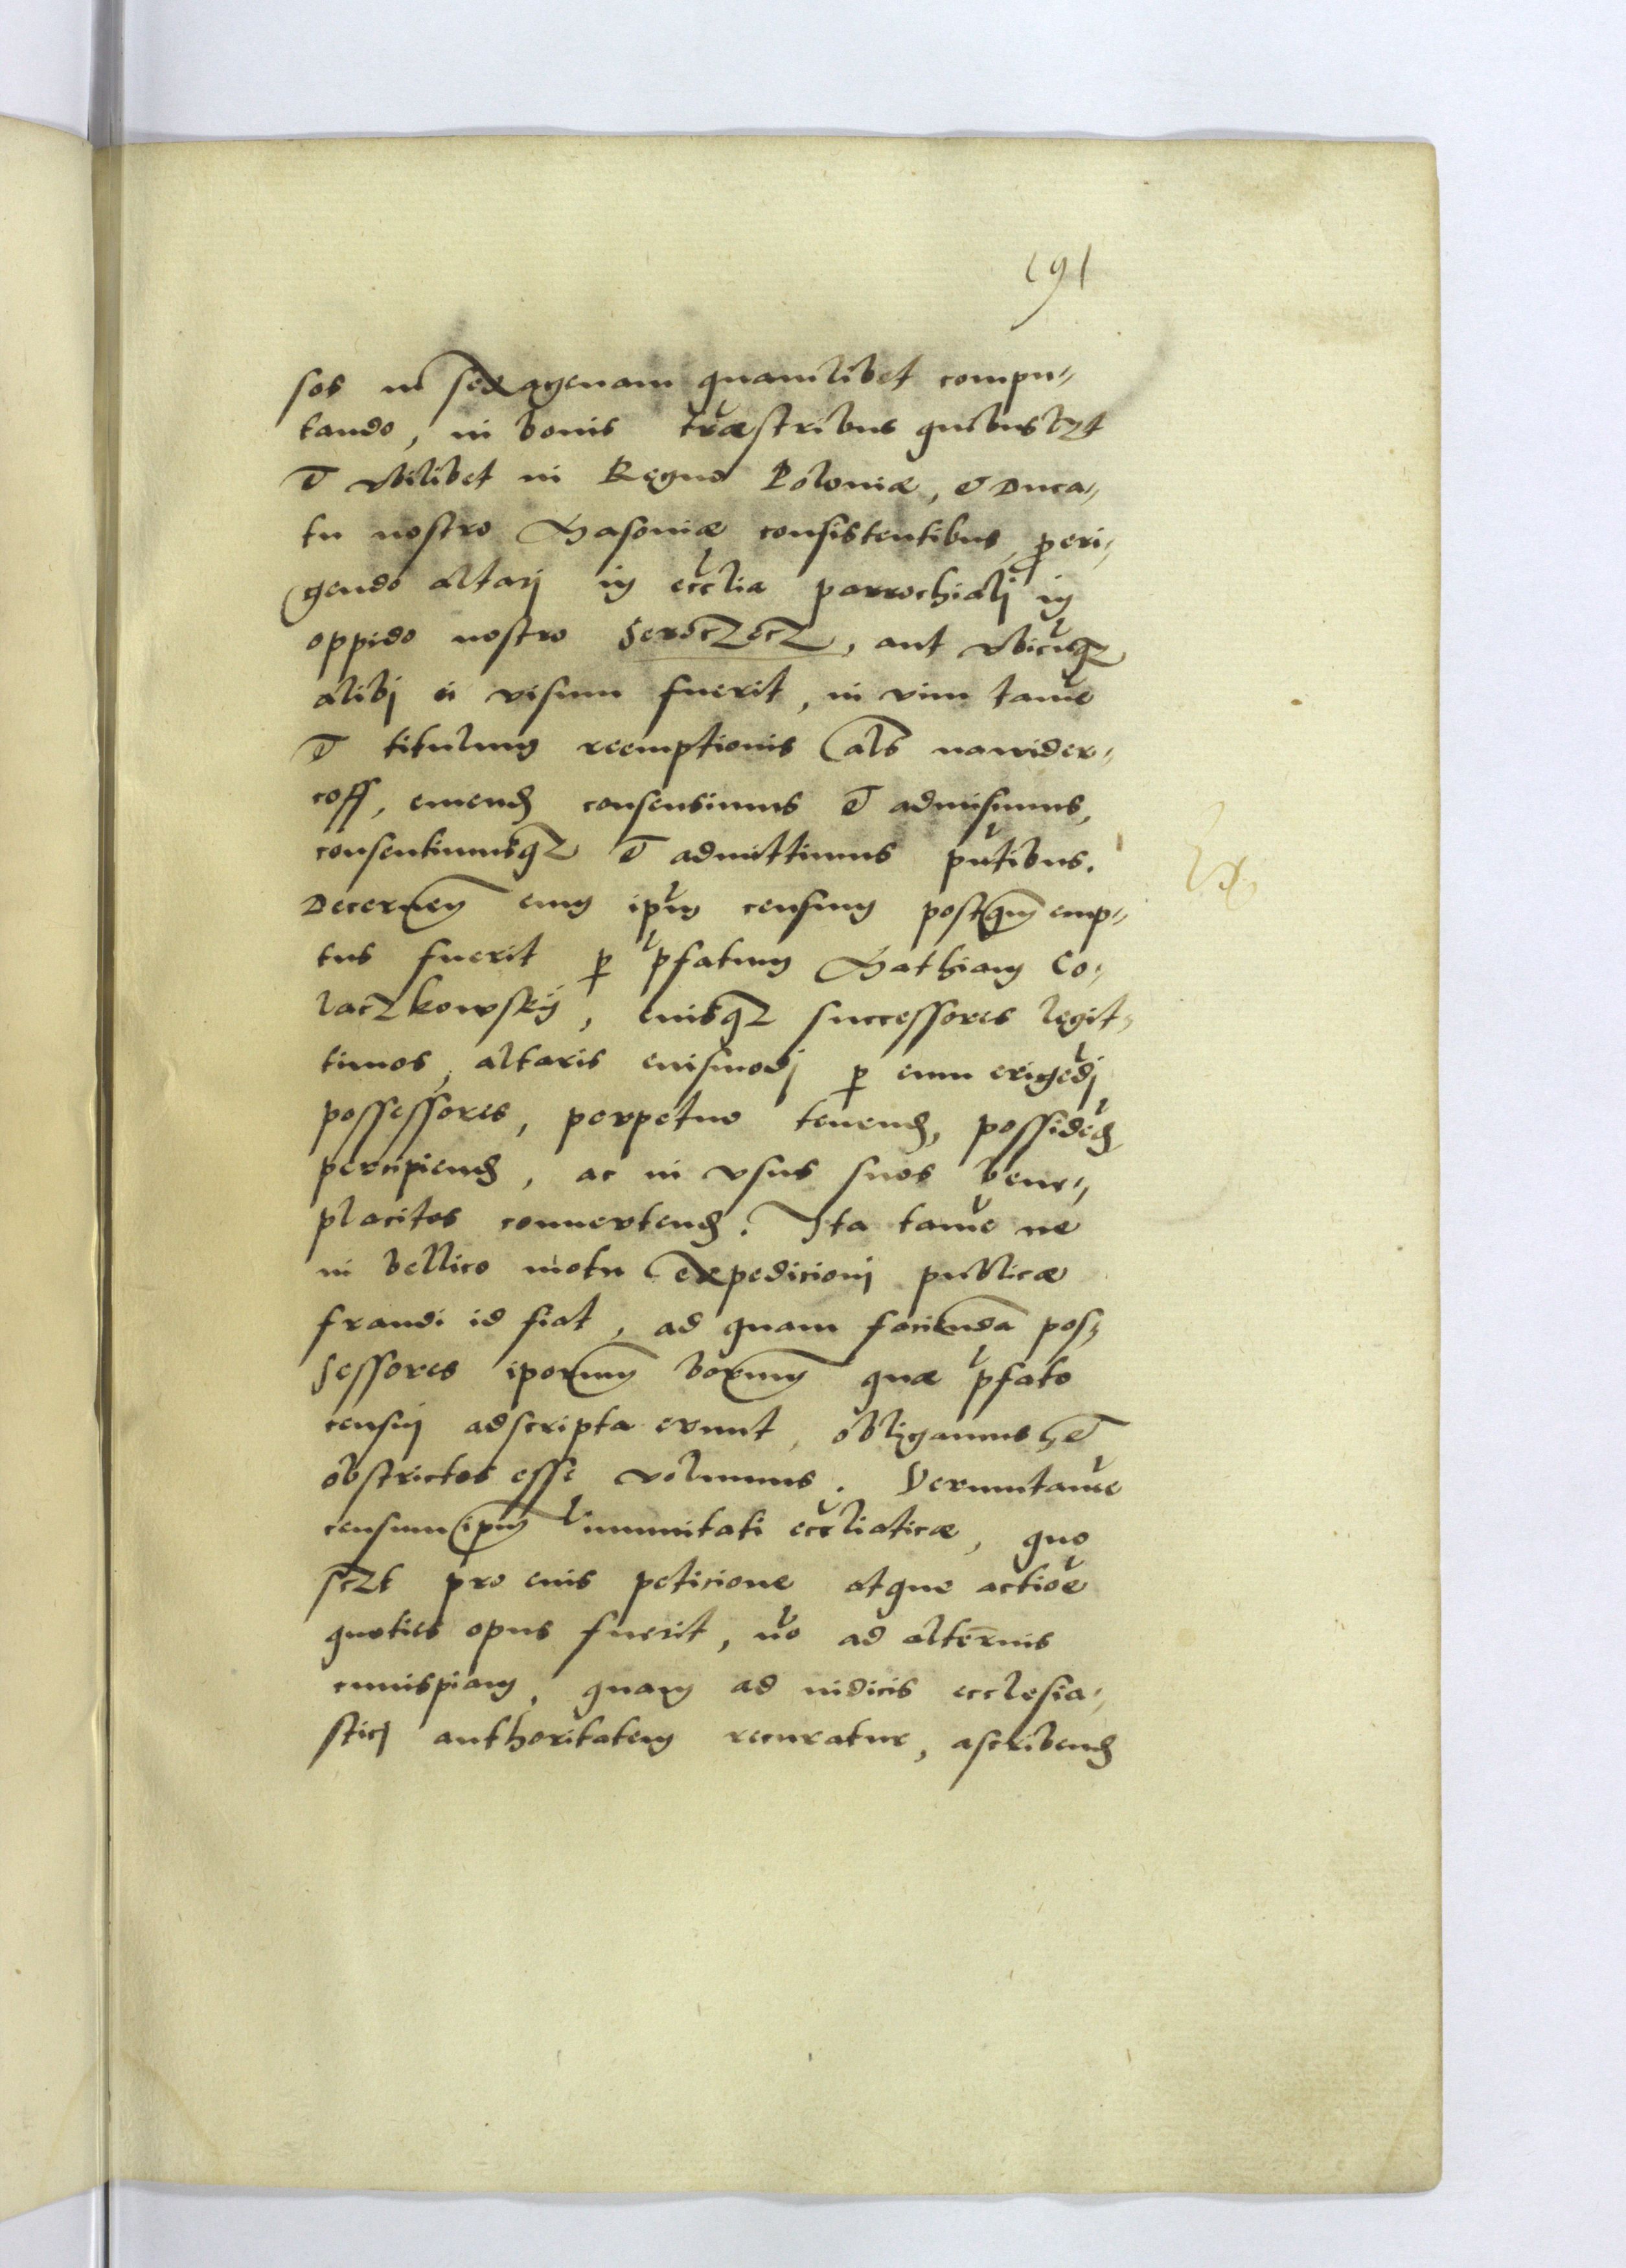 191
sos in sexagenam quamlibet compu„
tando, in bonis träestribus quibuslzt
et vbilibet in Regno Poloniæ, et Duca„
tu nostro Masoviæ consistentibus, p eri„
gendo altarj in eccłia parrochialj in
oppido nostro Seroczecz, aut vbicūqz
alibj ei visum fuerit, in vim tamē
et titulum reemptionis als nawider„
coff, emend consensimus et admisimus,
consentimusqz et admittimus pñtibus.
Decernen eum ipūm censum postqm emp„
tus fuerit p pfatum Mathiam Co„
laczkowskÿ, eiusqz successores legit„
timos, altaris eiusmodj p eum erigēdj
possessores, perpetuo tenend, possidēd
percipiend, ac in vsus suos bene„
placitos conuertend. Ita tamē ne
in bellico motu expedicionj publicæ
fraudi id fiat, ad quam faciendā pos„
sessores iporum bonorum quæ pfato
censuj adscripta erunt, obligamus et
obstrictos esse volumus. Veruntamē
censum ipm immunitati eccłiaticæ, quo
sczt pro eius peticione atque actiōe
quoties opus fuerit, nō ad alterius
cuiuspiam, quam ad iudicis ecclesia„
sticj authoritatem recuratur, ascribend